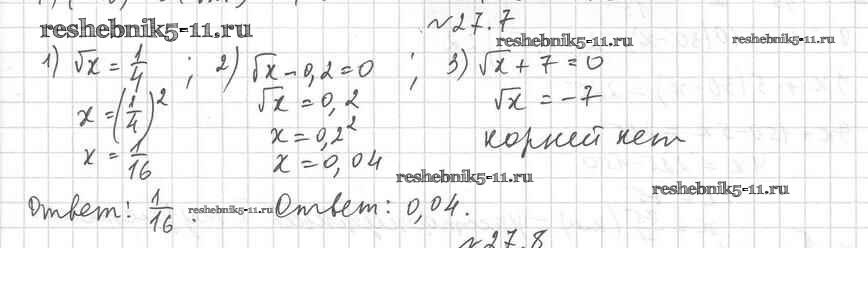 reshebnik5-11.ru
№27.7
reshebnik5-11.ru
reshebnik5-11.ru
1) √x = 1/4 ; 2) √x - 0,2 = 0 ; 3) √x + 7 = 0
x = (1/4)² √x = 0,2 √x = -7
x = 1/16 x = 0,2² корней нет
x = 0,04
reshebnik5-11.ru
reshebnik5-11.ru
Ответ: 1/16. reshebnik5-11.ru Ответ: 0,04.
№27.8